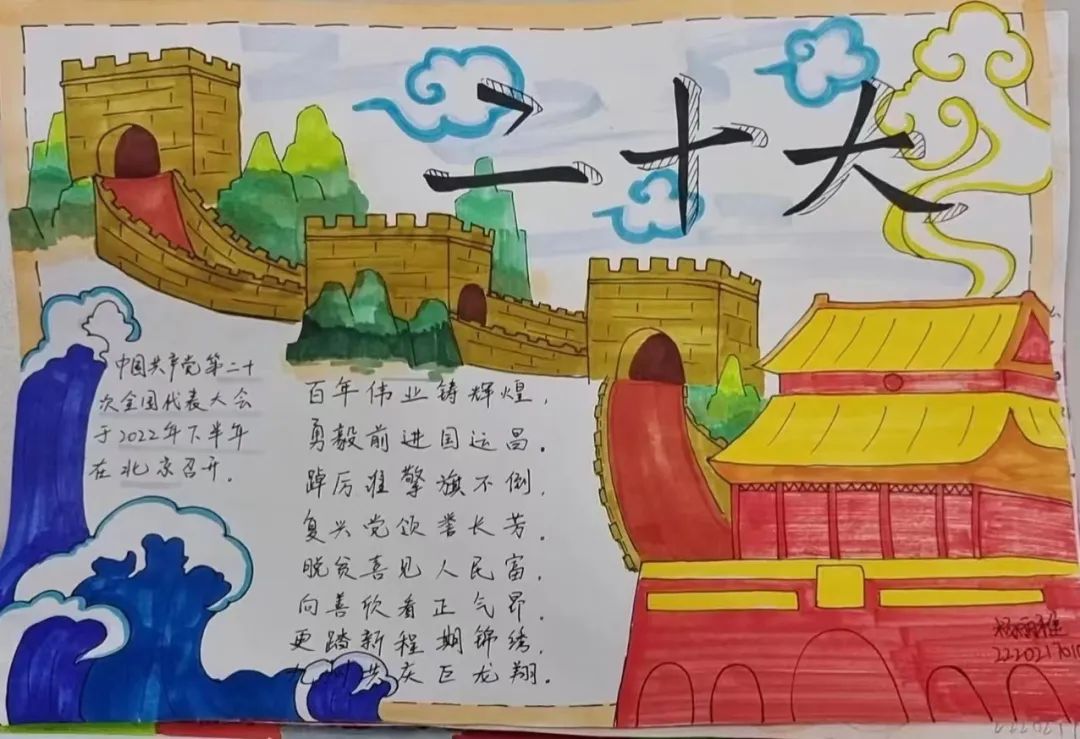 二十大
中国共产党第二十
次全国代表大会
于2022年下半年
在北京召开.
百年伟业铸辉煌,
勇毅前进国运昌.
踔厉谁擎旗不倒,
复兴党领誉长芳.
脱贫喜见人民富,
向善欣看正气昂.
更踏新程期锦绣,
九州共庆巨龙翔.